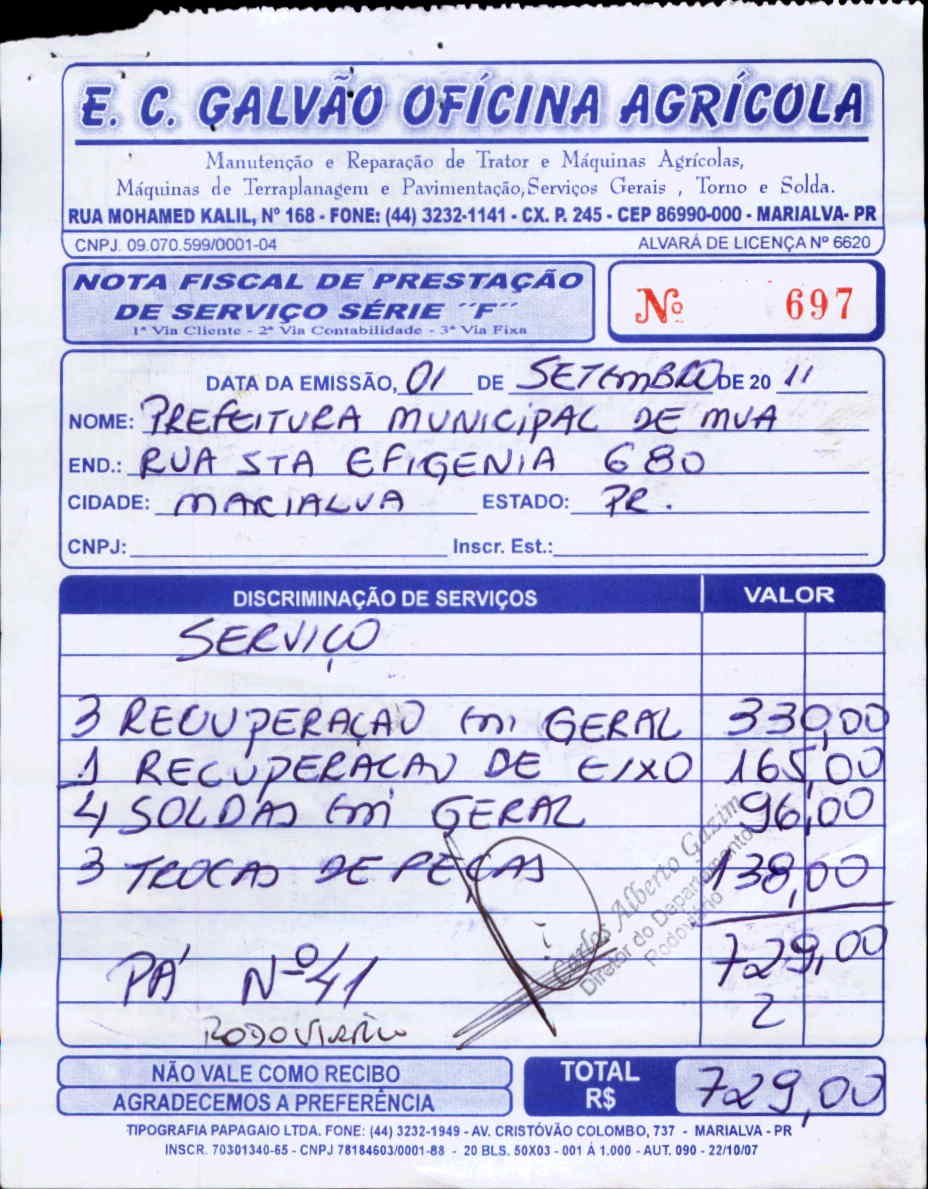 E. C. GALVÃO OFÍCINA AGRÍCOLA
Manutenção e Reparação de Trator e Máquinas Agrícolas,
Máquinas de Terraplanagem e Pavimentação, Serviços Gerais , Torno e Solda.
RUA MOHAMED KALIL, Nº 168 - FONE: (44) 3232-1141 - CX. P. 245 - CEP 86990-000 - MARIALVA- PR
CNPJ. 09.070.599/0001-04 ALVARÁ DE LICENÇA Nº 6620
NOTA FISCAL DE PRESTAÇÃO
DE SERVIÇO SÉRIE "F"
1ª Via Cliente - 2ª Via Contabilidade - 3ª Via Fixa
Nº 697
DATA DA EMISSÃO, 01 DE SETEMBRO DE 20 11
NOME: PREFEITURA MUNICIPAL DE MVA
END.: RUA STA EFIGENIA 680
CIDADE: MARIALVA ESTADO: PR.
CNPJ: Inscr. Est.:
DISCRIMINAÇÃO DE SERVIÇOS VALOR
SERVIÇO
3 RECUPERAÇAO EM GERAL 330,00
1 RECUPERACAO DE EIXO 165,00
4 SOLDAS EM GERAL 96,00
3 TROCAS DE PEÇAS 138,00
729,00
Carlos Alberto Gazim
Diretor do Departamento
Rodoviário
PÁ Nº 41
2
RODOVIARIO
NÃO VALE COMO RECIBO
AGRADECEMOS A PREFERÊNCIA
TOTAL R$ 729,00
TIPOGRAFIA PAPAGAIO LTDA. FONE: (44) 3232-1949 - AV. CRISTÓVÃO COLOMBO, 737 - MARIALVA - PR
INSCR. 70301340-65 - CNPJ 78184603/0001-88 - 20 BLS. 50X03 - 001 Á 1.000 - AUT. 090 - 22/10/07